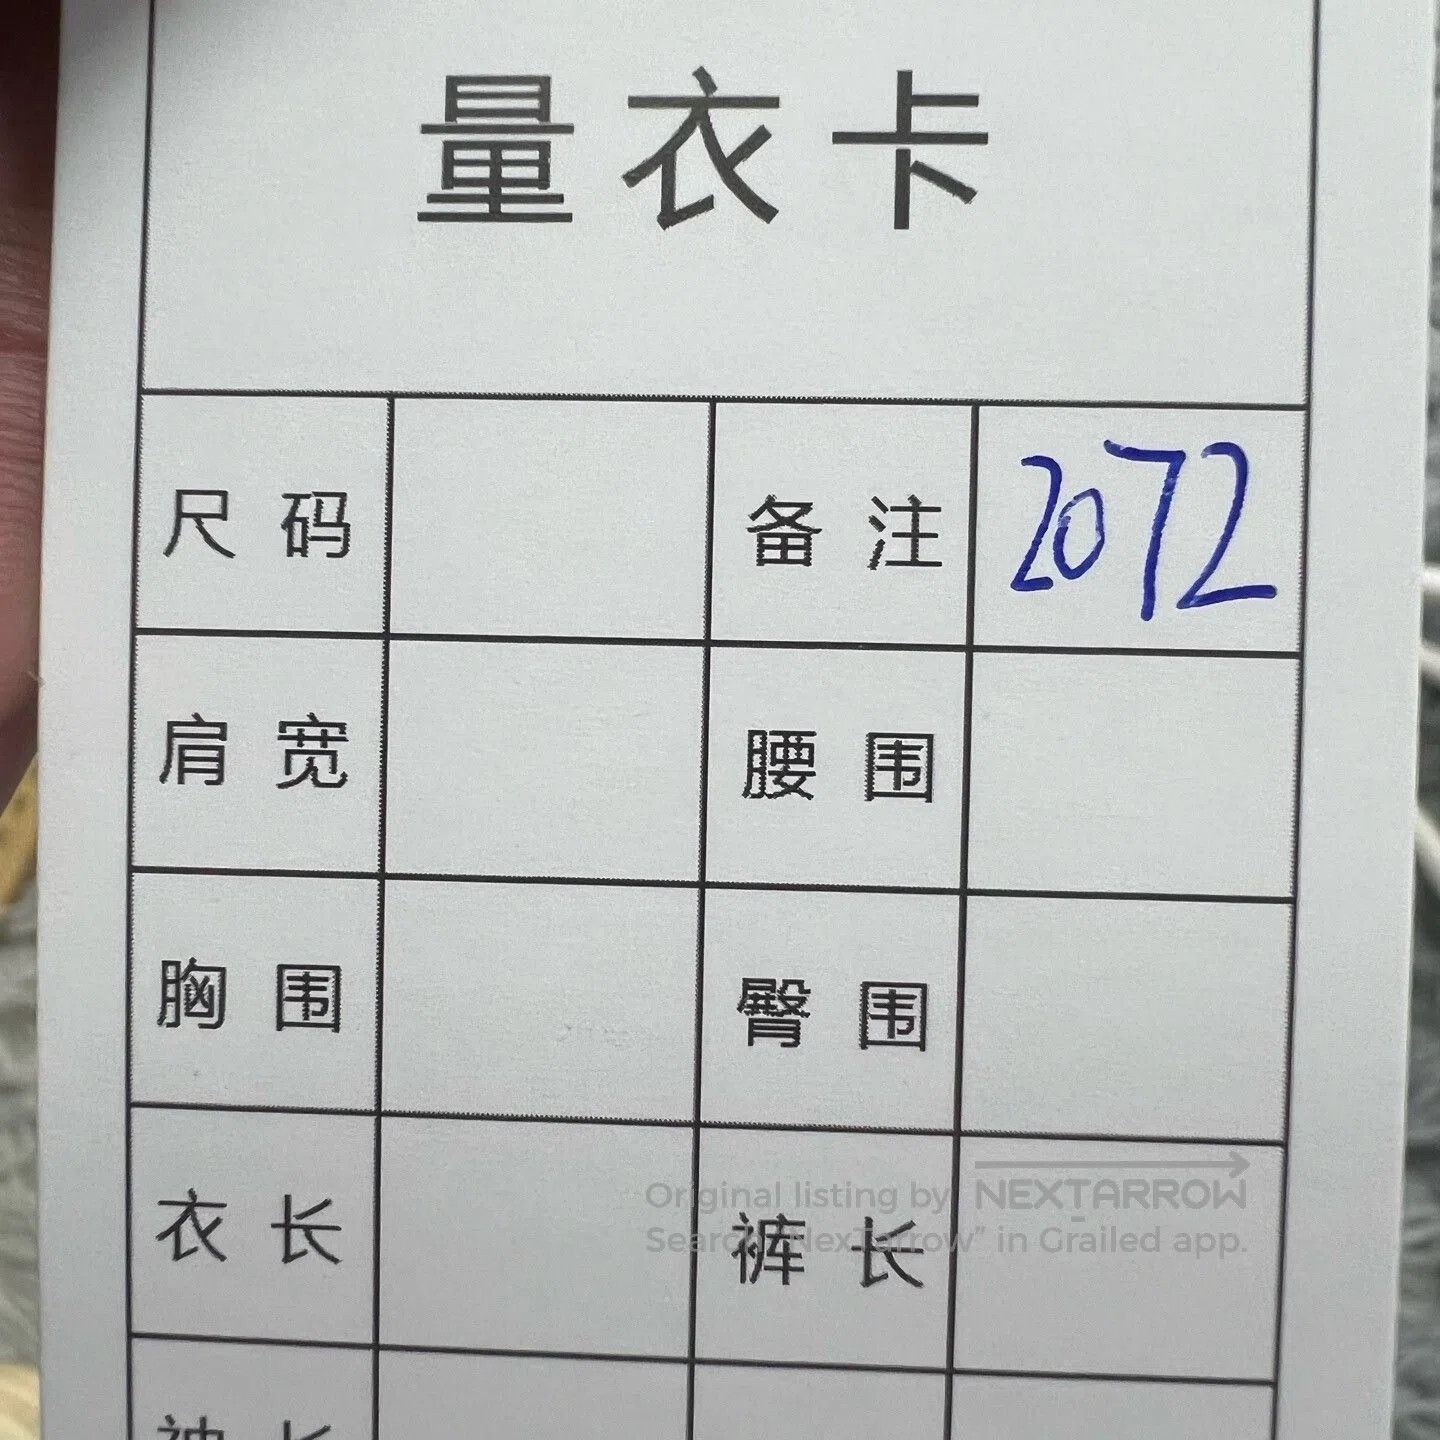 量衣卡
尺码 备注 2072
肩宽 腰围
胸围 臀围
衣长 裤长
Original listing by NEXTARROW
Search "NexTarrow" in Grailed app.
袖长